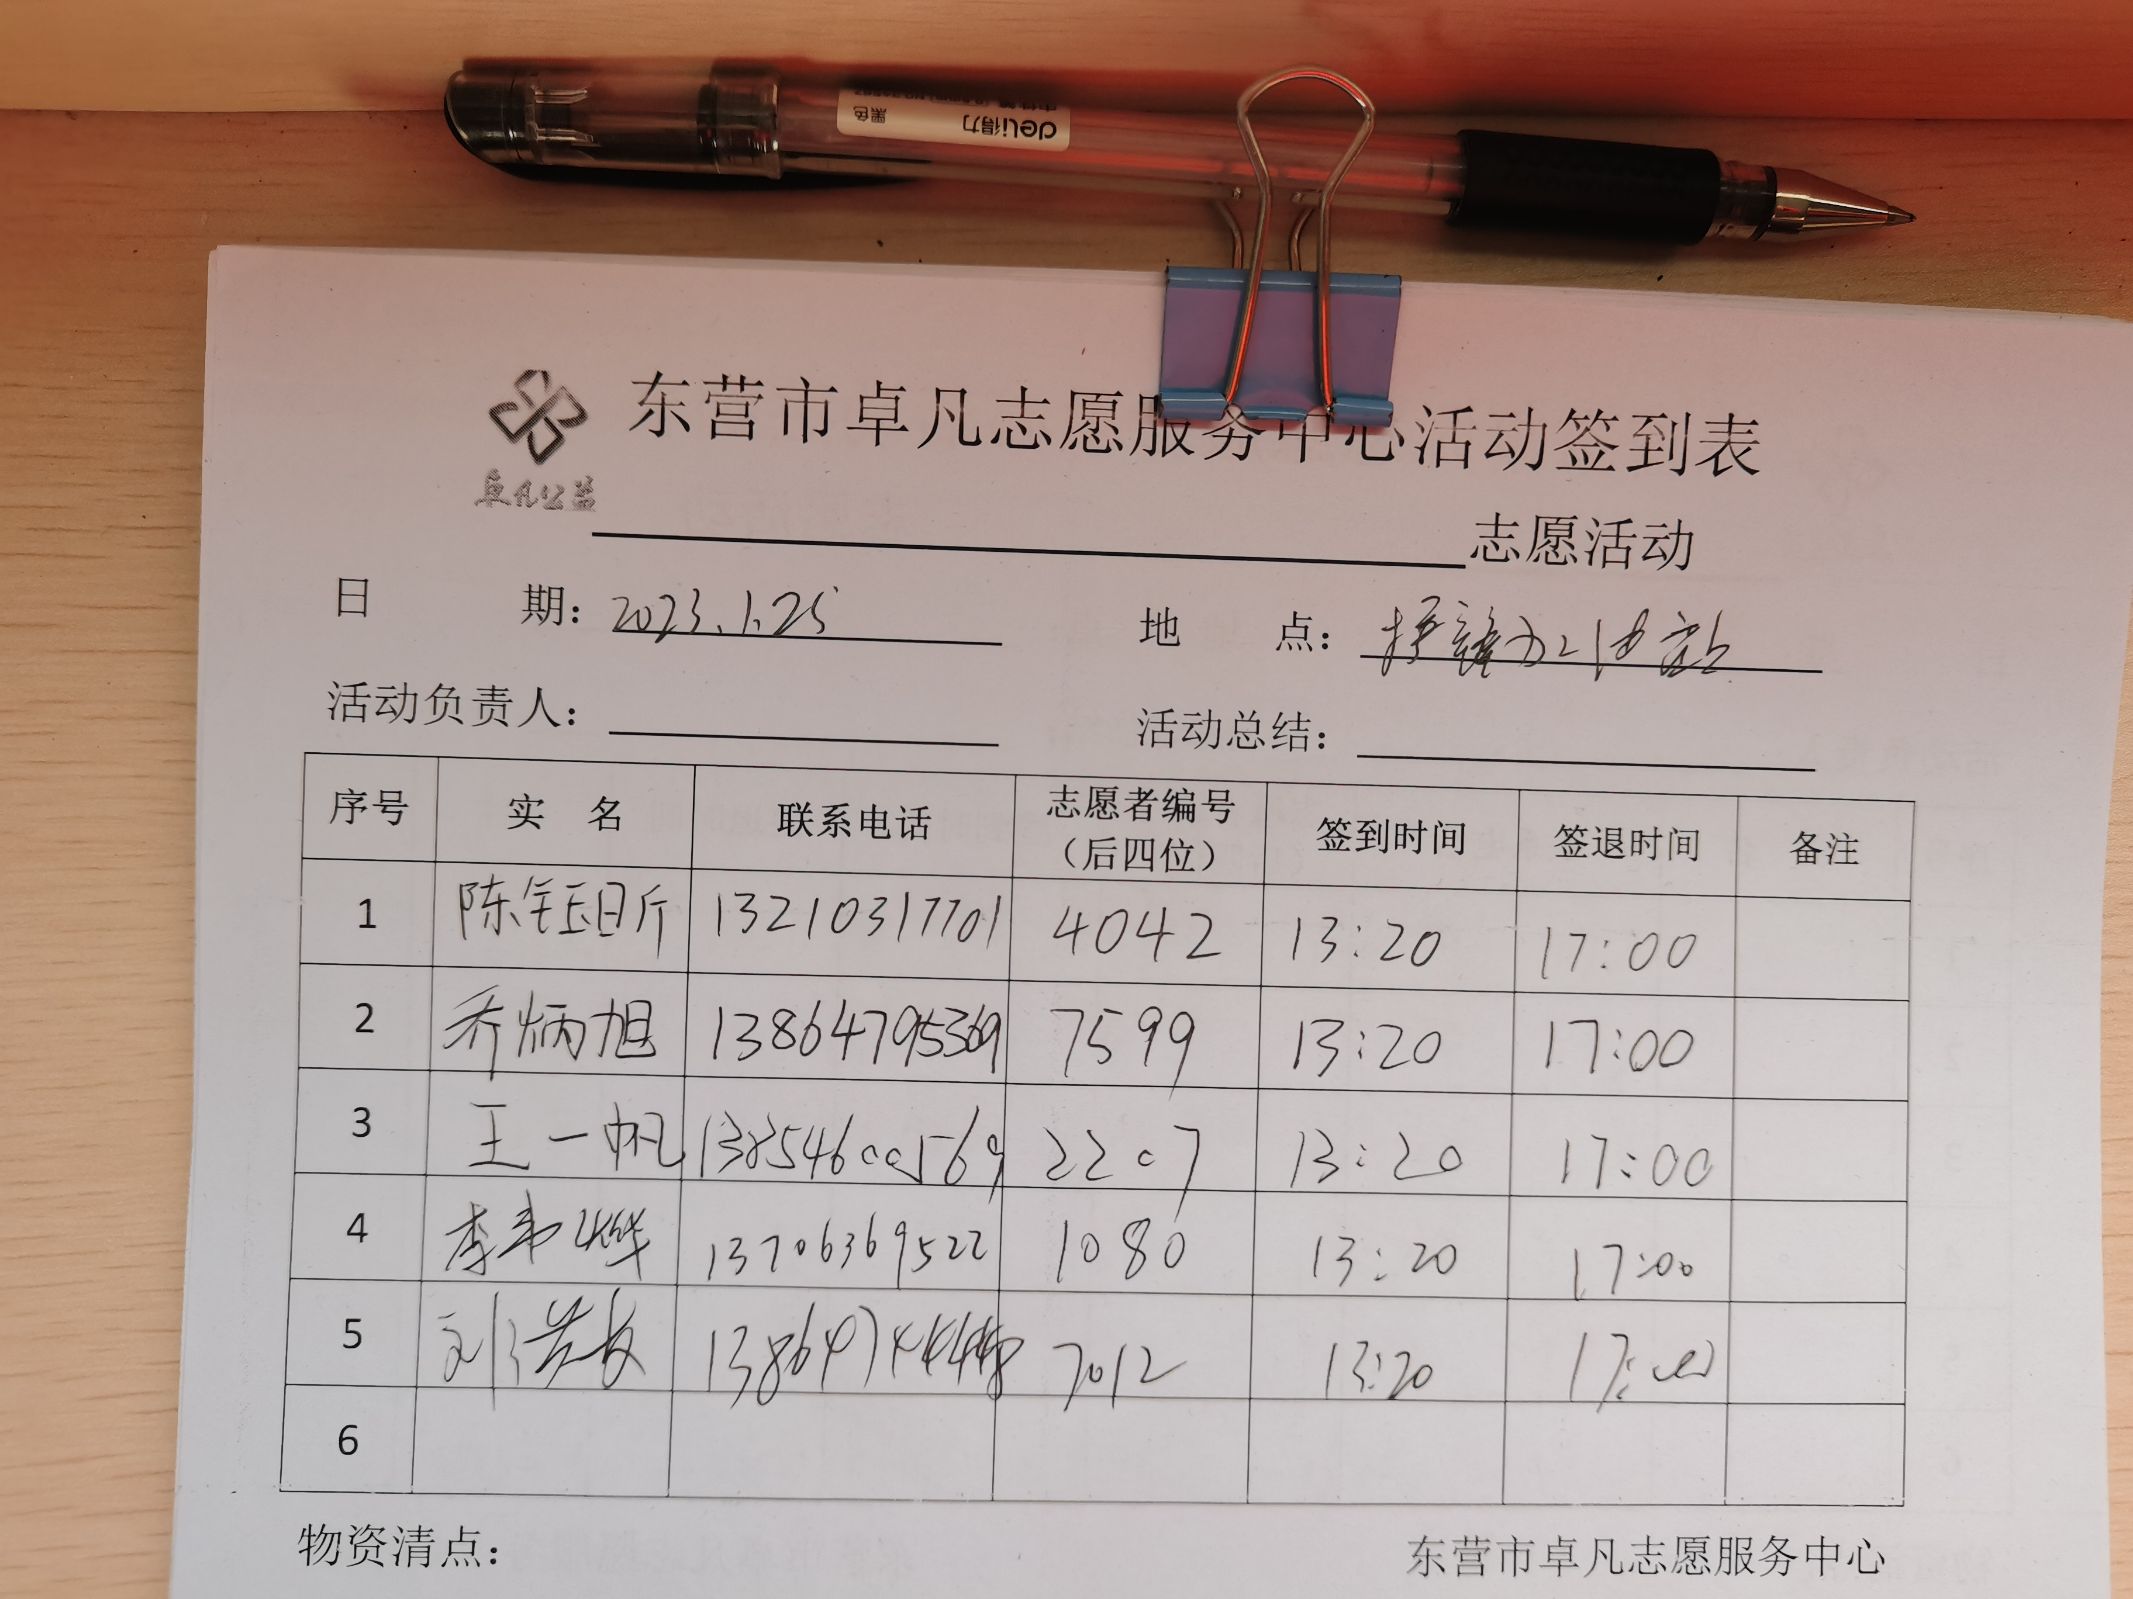 deli得力
黑色
东营市卓凡志愿服务中心活动签到表
卓凡公益
志愿活动
日 期: 2023.1.25 地 点:
活动负责人: 活动总结:
序号 实 名 联系电话 志愿者编号（后四位） 签到时间 签退时间 备注
1 陈钰昕 13210317701 4042 13:20 17:00
2 乔炳旭 13864795369 7599 13:20 17:00
3 王一帆 13854600569 2207 13:20 17:00
4 李 13706369522 1080 13:20 17:00
5 刘 7012 13:20 17:00
6
物资清点: 东营市卓凡志愿服务中心